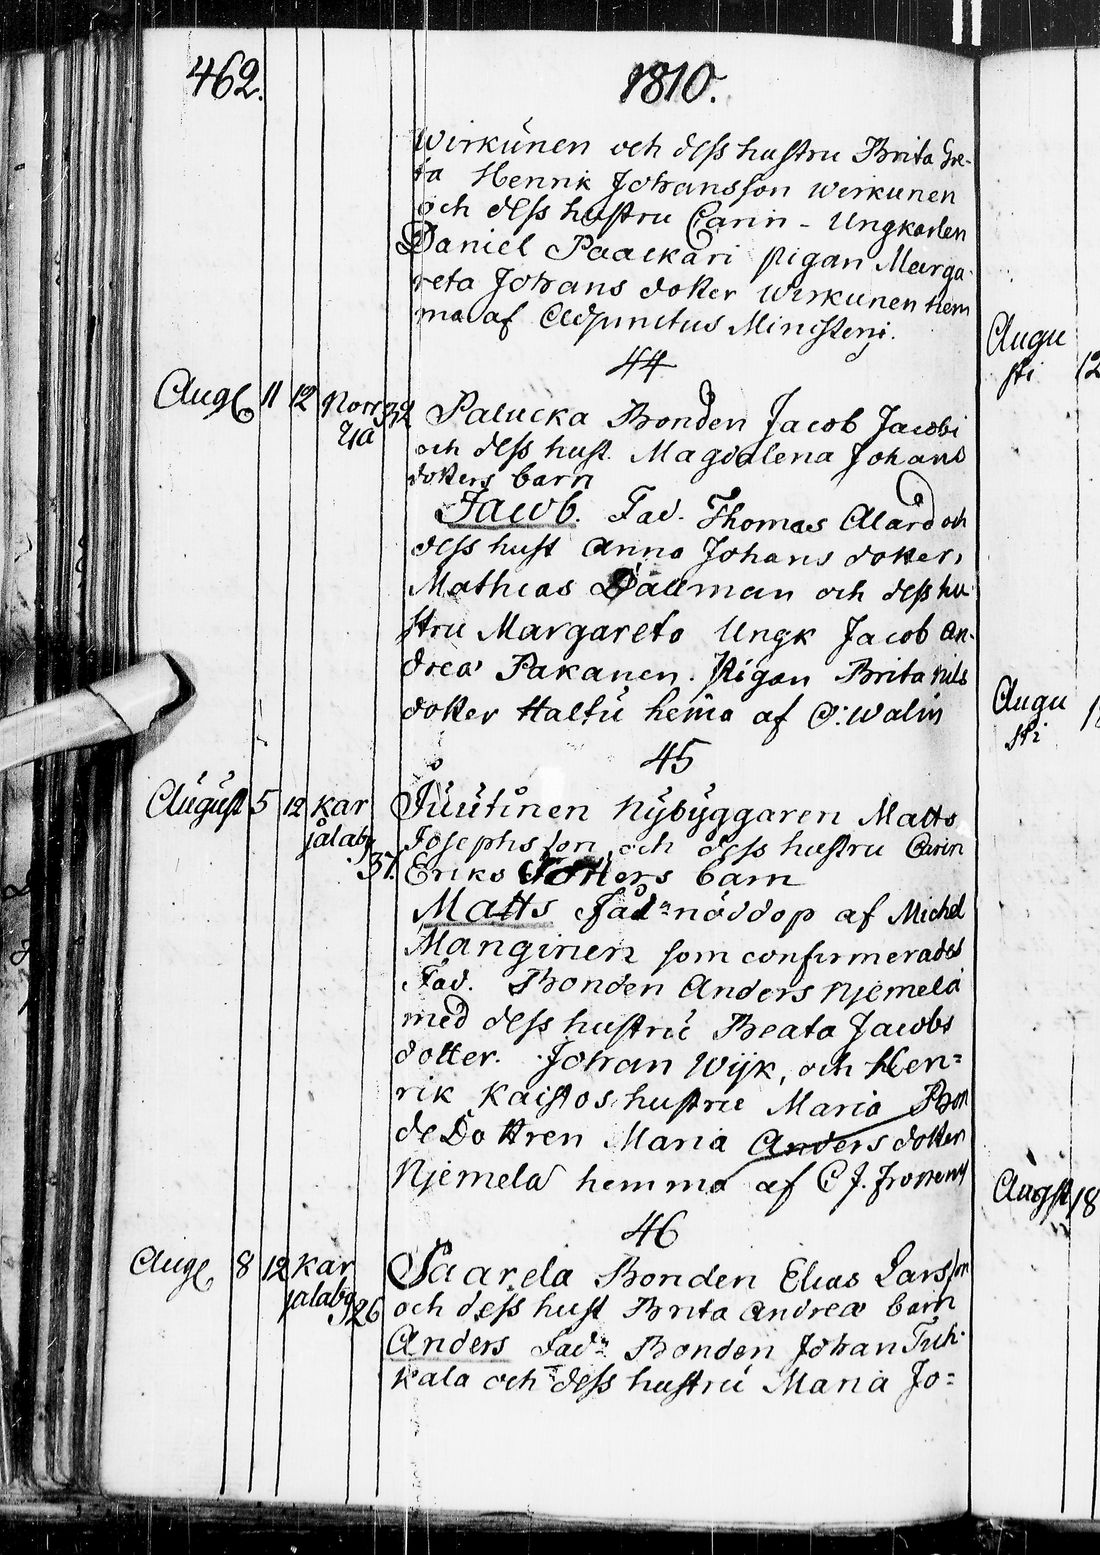 462.
1810.
Wirkunen och dess hustru Brita Gre-
ta Henrik Johansson Wirkunen
och dess hustru Carin - Ungkarlen
Daniel Paackari pigan Marga-
reta Johans dotter Wirkunen hem
ma af Adjunctus Ministerij.
44
Aug 11 12 Norr 32 Palucka Bonden Jacob Jacobi
och dess hust. Magdalena Johans
dotters barn
Jacob. Fad. Thomas Alard och
dess hust Anna Johans dotter,
Mathias Dallman och dess hu-
stru Margareta Ungk Jacob An-
dreæ Pakanen. Pigan Brita Nils
dotter Haltu hema af C: Walin
45
August 5 12 Kar Juutinen Nybyggaren Matts
jalaby Josephsson och dess hustru Carin
37. Eriks dotters barn
Matts Fad: nöddöp af Michel
Manginen som confirmerades
Fad. Bonden Anders Njemelä
med dess hustru Beata Jacobs
dotter. Johan Wijk, och Hen=
rik Kaistos hustru Maria Bon
de Dottren Maria Anders dotter
Njemelä hemma af C J.
46
Aug 8 12 Kar Saarela Bonden Elias Larsson
jalaby 26 och dess hust Brita Andreæ barn
Anders Fad: Bonden Johan Tuh-
kala och dess hustru Maria Jo=
Augu
sti 12
Augu
sti
Augst 18